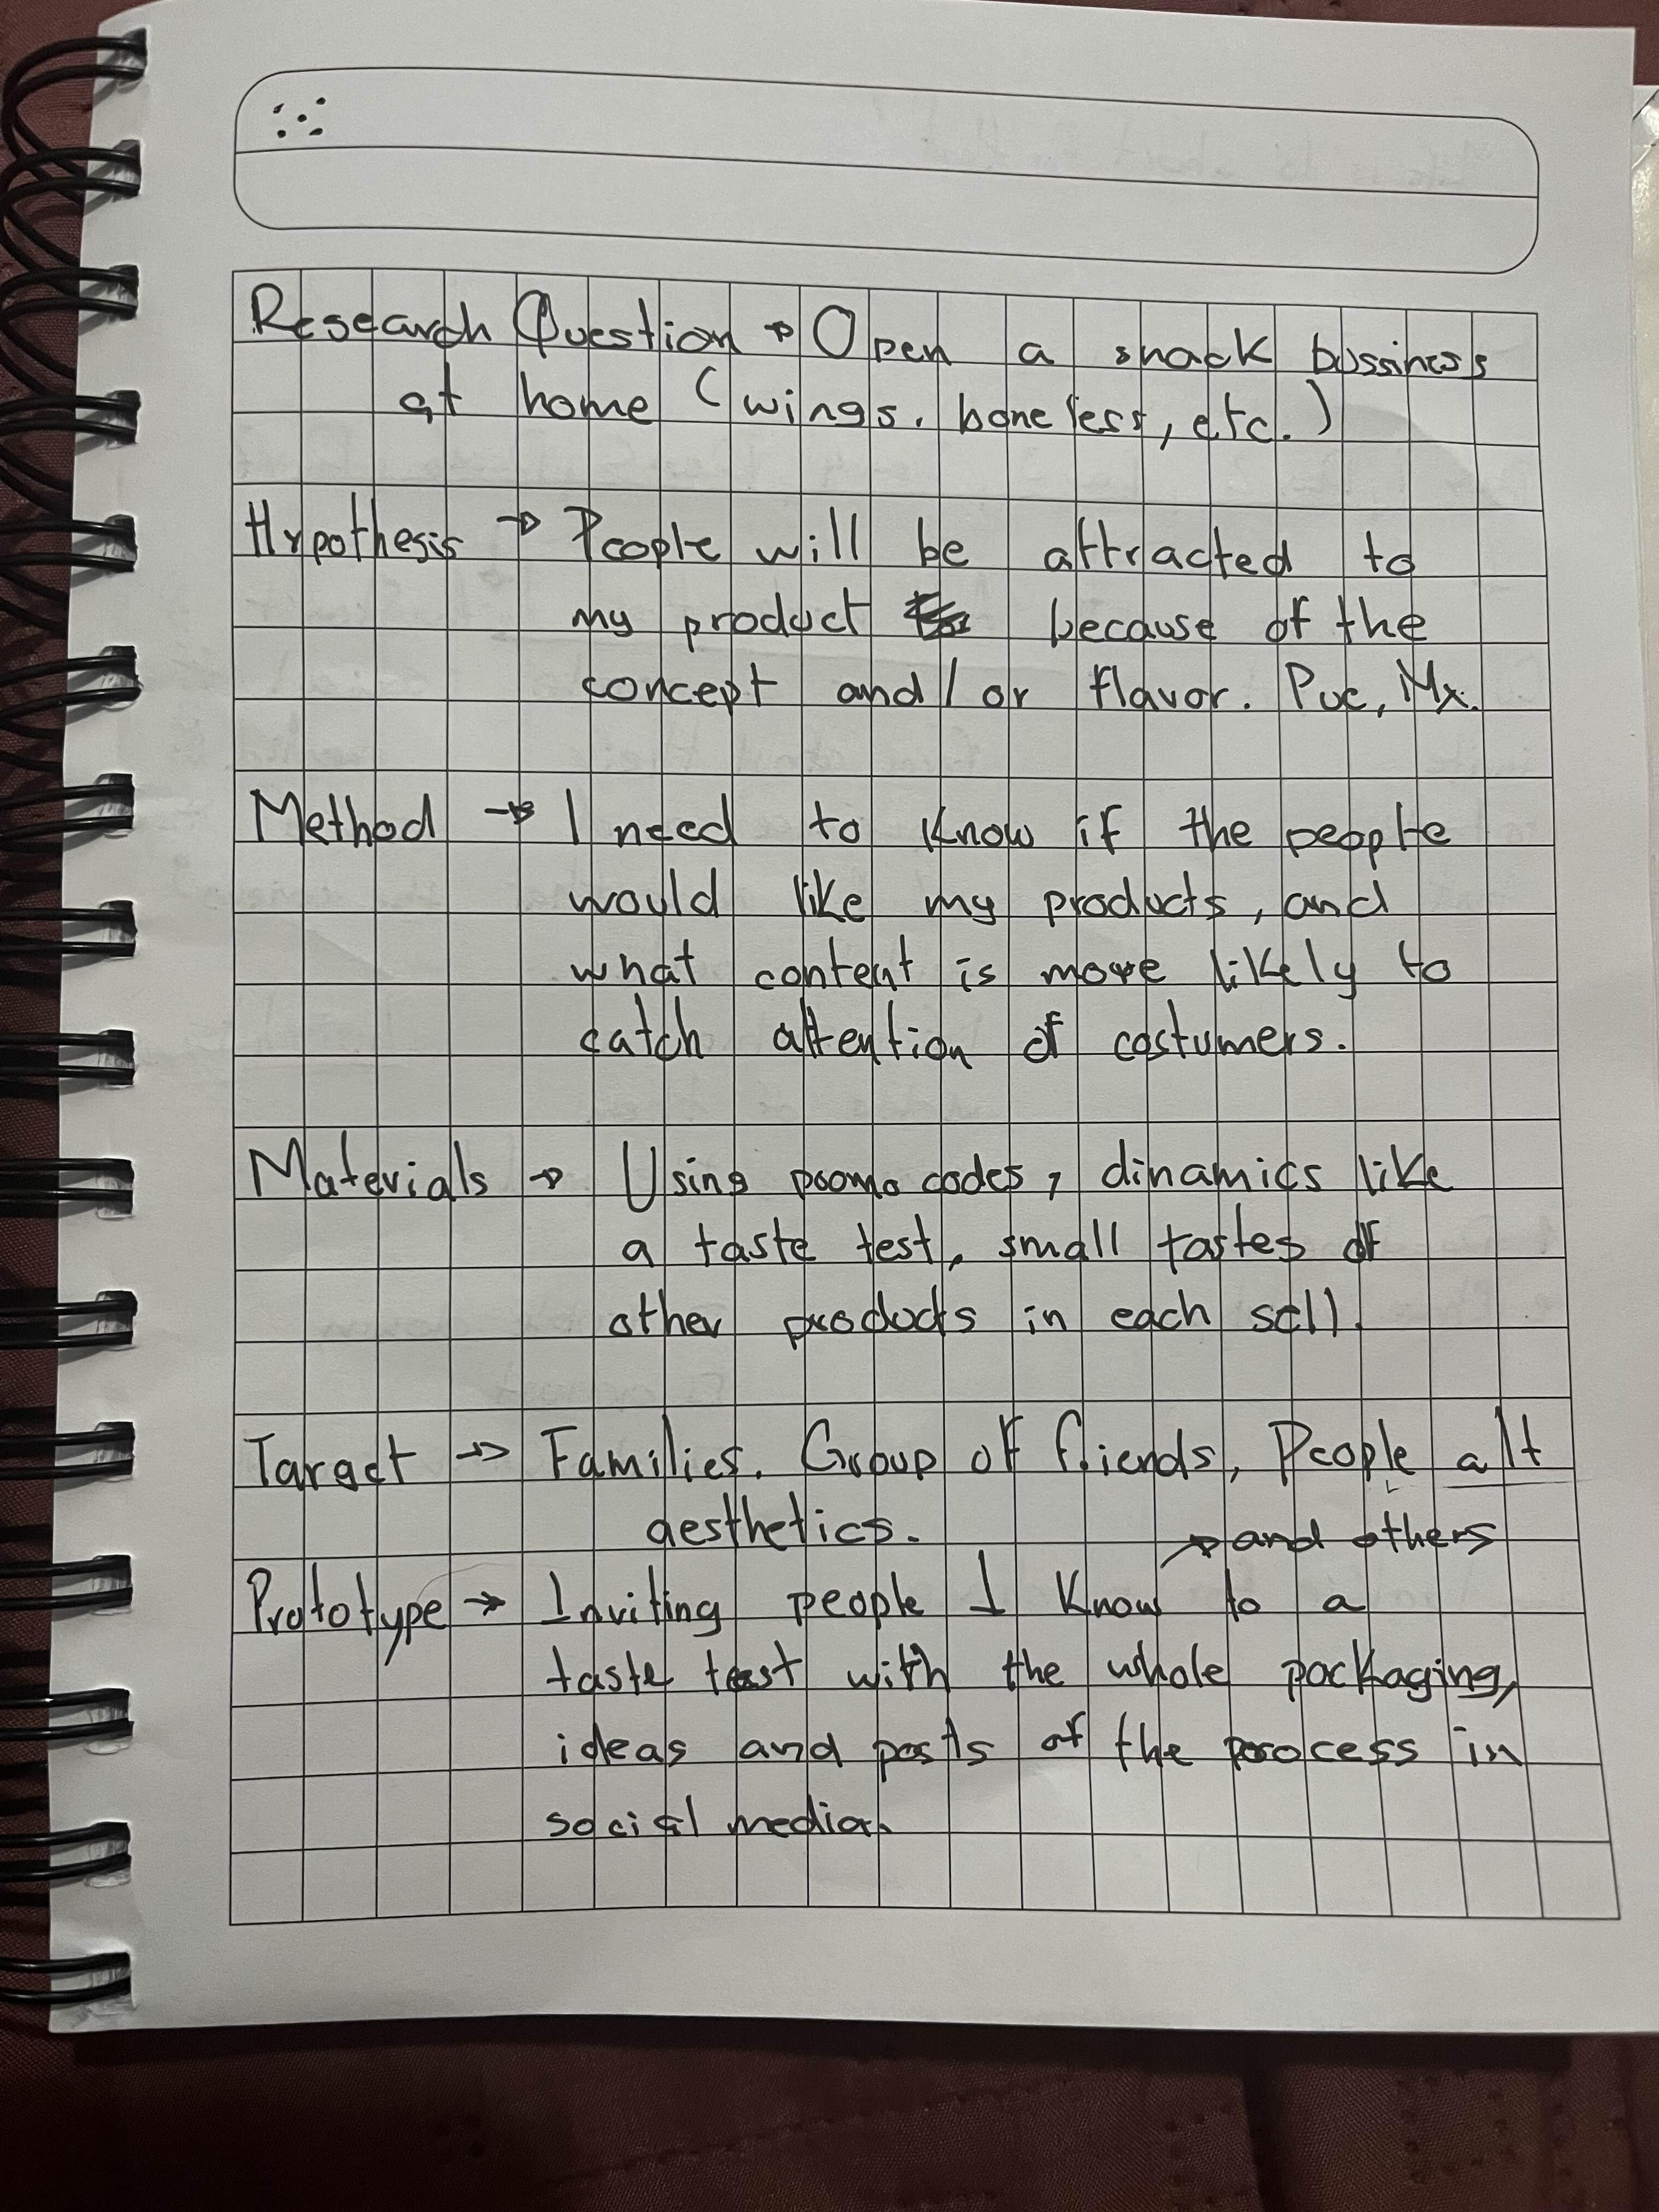 Research Question → Open a snack bussiness
at home (wings, boneless, etc.)
Hypothesis → People will be attracted to
my product because of the
concept and/or flavor. Pue, Mx.
Method → I need to know if the people
would like my products, and
what content is more likely to
catch attention of costumers.
Materials → Using promo codes, dinamics like
a taste test, small tastes of
other products in each sell.
Target → Families. Group of friends, People alt
aesthetics.
→ and others
Prototype → Inviting people I know to a
taste test with the whole packaging,
ideas and posts of the process in
social media.